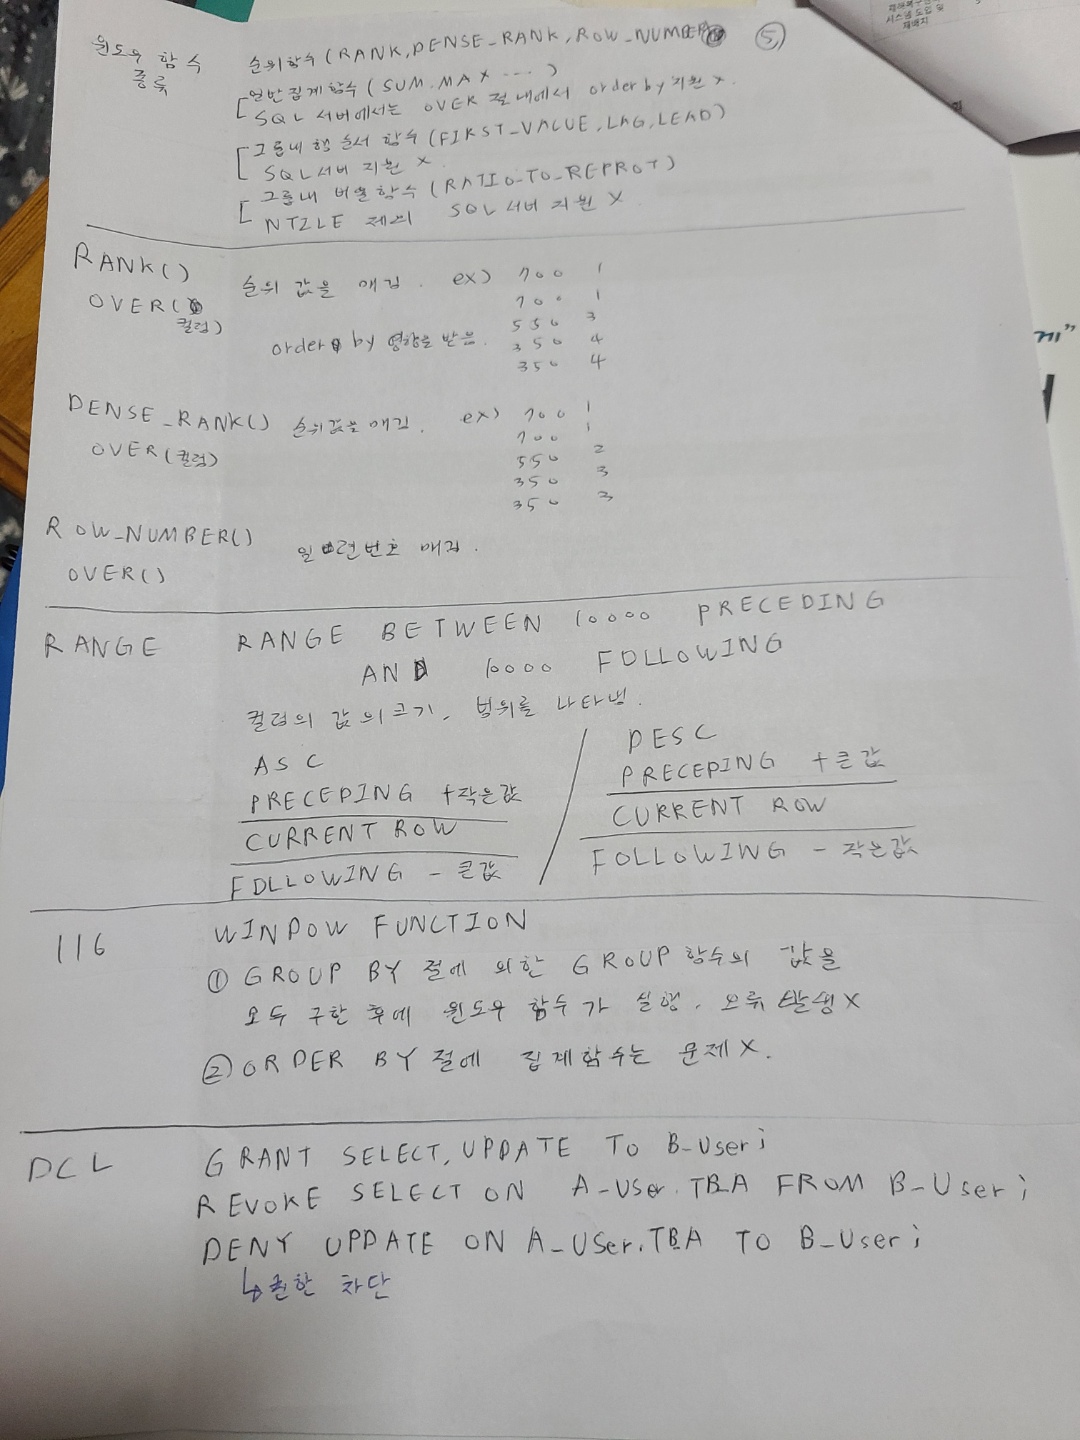 윈도우 함수 종류
순위함수 (RANK, DENSE_RANK, ROW_NUMBER) ⑤
일반집계함수 (SUM, MAX ....)
SQL 서버에서는 OVER 절내에서 order by 지원 X.
그룹내 행 순서 함수 (FIRST_VALUE, LAG, LEAD)
SQL 서버 지원 X.
그룹내 비율 함수 (RATIO_TO_REPROT)
NTILE 제외 SQL 서버 지원 X.
RANK()
OVER(
컬럼)
순위 값을 매김. ex) 700 1
700 1
550 3
order by 영향을 받음. 350 4
350 4
DENSE_RANK() 순위값을 매김. ex) 700 1
700 1
OVER(컬럼) 550 2
350 3
350 3
ROW_NUMBER() 일련번호 매김.
OVER()
RANGE RANGE BETWEEN 10000 PRECEDING
AND 10000 FOLLOWING
컬럼의 값의 크기, 범위를 나타냄.
ASC
PRECEDING +작은값
CURRENT ROW
FOLLOWING - 큰값
DESC
PRECEDING +큰값
CURRENT ROW
FOLLOWING - 작은값
116 WINDOW FUNCTION
① GROUP BY 절에 의한 GROUP 함수의 값을
모두 구한 후에 윈도우 함수가 실행. 오류 발생 X
② ORDER BY 절에 집계함수는 문제 X.
DCL GRANT SELECT, UPDATE TO B_User;
REVOKE SELECT ON A_User.TBA FROM B_User;
DENY UPDATE ON A_User.TBA TO B_User;
↳ 권한 차단
시스템 도입 및
재배치
게"